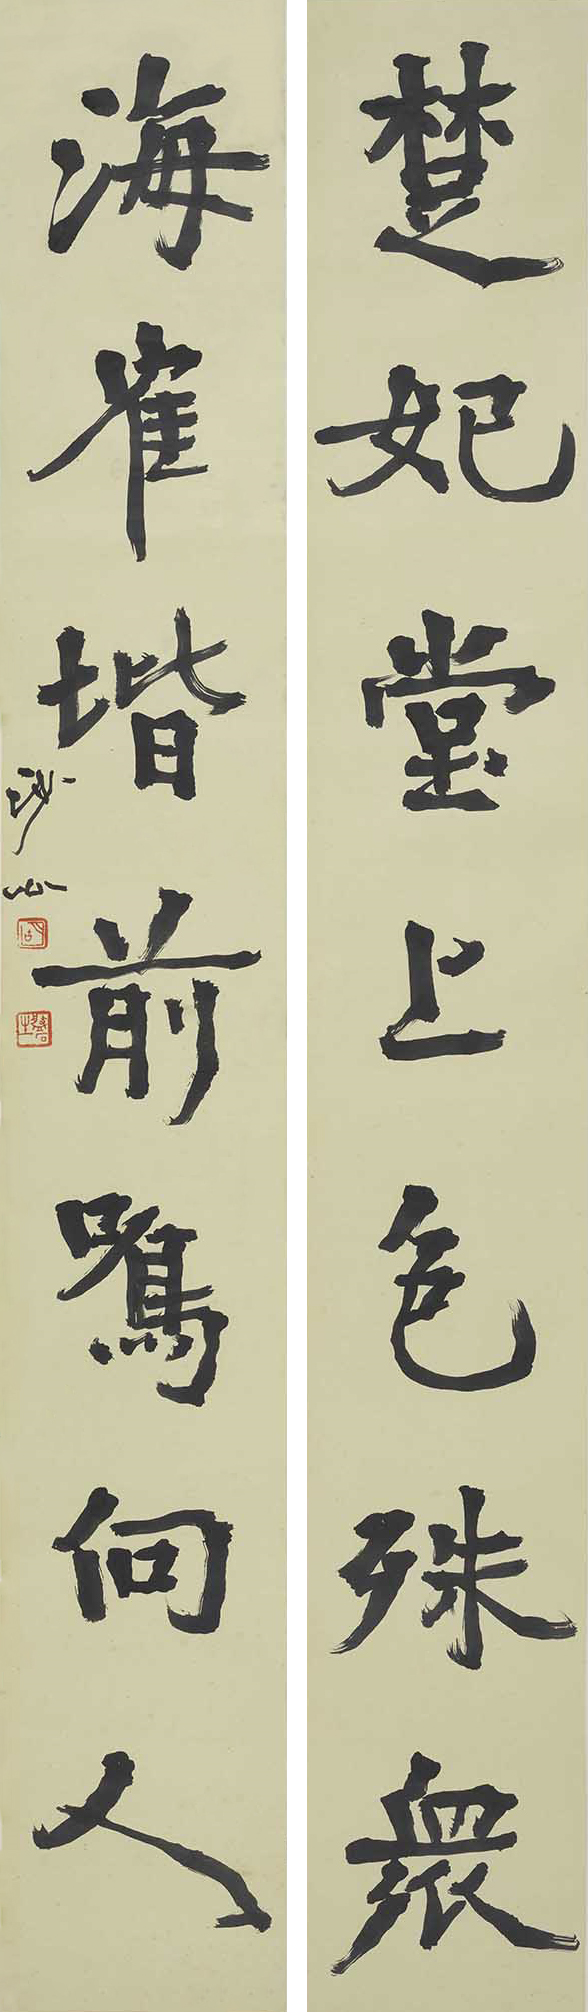 楚妃堂上色殊衆
海隺堦前鳴向人